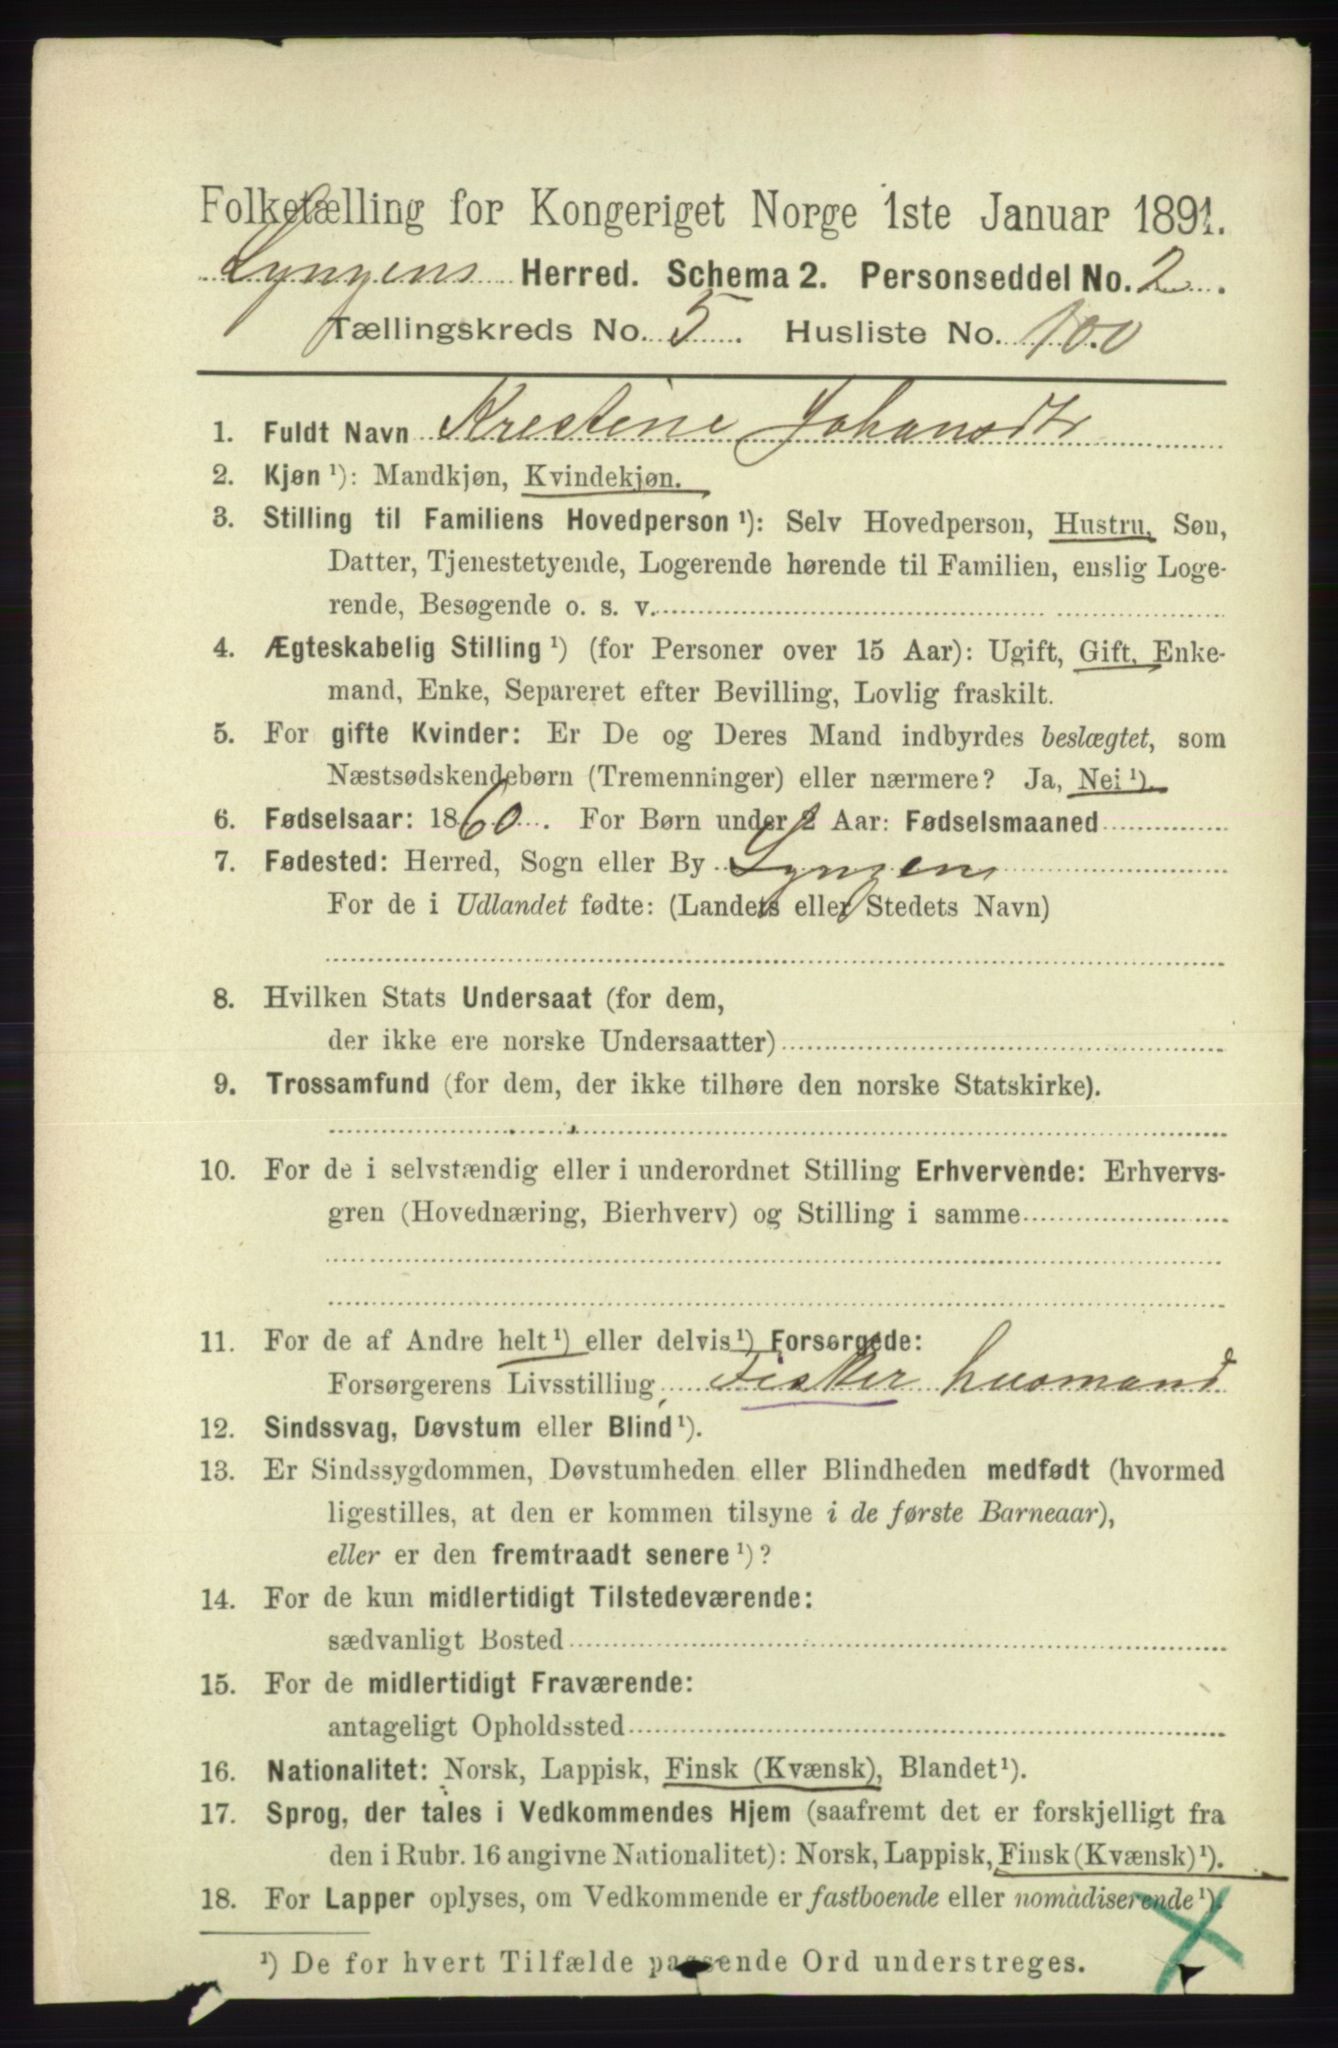 Folketælling for Kongeriget Norge 1ste Januar 1891.
Lyngens Herred. Schema 2. Personseddel No. 2.
Tællingskreds No. 5. Husliste No. 100
1. Fuldt Navn Kristine Johansdtr
2. Kjøn ¹): Mandkjøn, Kvindekjøn.
3. Stilling til Familiens Hovedperson ¹): Selv Hovedperson, Hustru, Søn,
Datter, Tjenestetyende, Logerende hørende til Familien, enslig Loge-
rende, Besøgende o. s. v.
4. Ægteskabelig Stilling ¹) (for Personer over 15 Aar): Ugift, Gift, Enke-
mand, Enke, Separeret efter Bevilling, Lovlig fraskilt.
5. For gifte Kvinder: Er De og Deres Mand indbyrdes beslægtet, som
Næstsødskendebørn (Tremenninger) eller nærmere? Ja, Nei ¹).
6. Fødselsaar: 1860. For Børn under 2 Aar: Fødselsmaaned
7. Fødested: Herred, Sogn eller By Lyngen
For de i Udlandet fødte: (Landets eller Stedets Navn)
8. Hvilken Stats Undersaat (for dem,
der ikke ere norske Undersaatter)
9. Trossamfund (for dem, der ikke tilhøre den norske Statskirke).
10. For de i selvstændig eller i underordnet Stilling Erhvervende: Erhvervs-
gren (Hovednæring, Bierhverv) og Stilling i samme
11. For de af Andre helt ¹) eller delvis ¹) Forsørgede:
Forsørgerens Livsstilling Fisker husmand
12. Sindssvag, Døvstum eller Blind ¹).
13. Er Sindssygdommen, Døvstumheden eller Blindheden medfødt (hvormed
ligestilles, at den er kommen tilsyne i de første Barneaar),
eller er den fremtraadt senere ¹)?
14. For de kun midlertidigt Tilstedeværende:
sædvanligt Bosted
15. For de midlertidigt Fraværende:
antageligt Opholdssted
16. Nationalitet: Norsk, Lappisk, Finsk (Kvænsk), Blandet ¹).
17. Sprog, der tales i Vedkommendes Hjem (saafremt det er forskjelligt fra
den i Rubr. 16 angivne Nationalitet): Norsk, Lappisk, Finsk (Kvænsk) ¹).
18. For Lapper oplyses, om Vedkommende er fastboende eller nomadiserende ¹).
¹) De for hvert Tilfælde passende Ord understreges.